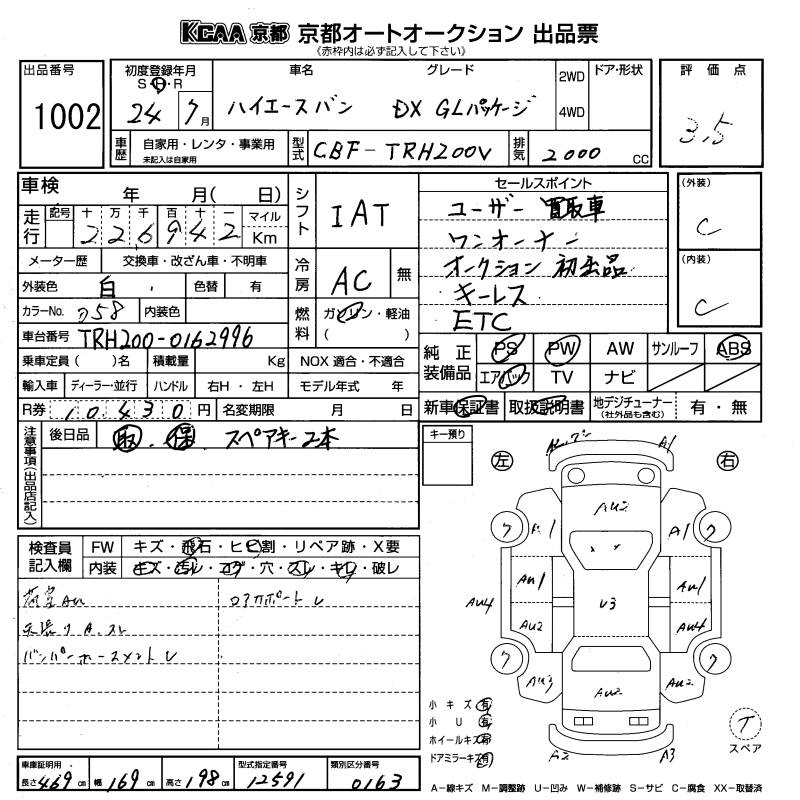 KCAA 京都 京都オートオークション 出品票
《赤枠内は必ず記入して下さい》
出品番号
1002
初度登録年月
S・H・R
24 7月
車名 グレード
ハイエースバン DX GLパッケージ
2WD
4WD
ドア・形状
評価点
3.5
車歴
自家用・レンタ・事業用
未記入は自家用
型式
CBF-TRH200V
排気
2000 CC
車検 年 月( 日)
走行
記号 十 万 千 百 十 一 マイル
2 2 6 9 4 2 Km
メーター歴 交換車・改ざん車・不明車
外装色 白 色替 有
カラーNo. 058 内装色
車台番号 TRH200-0162996
乗車定員 ( )名 積載量 Kg
輸入車 ディーラー・並行 ハンドル 右H・左H
R券 10,430円 名変期限 月 日
シフト
IAT
冷房
AC 無
燃料
ガソリン・軽油
( )
NOX 適合・不適合
モデル年式 年
セールスポイント
ユーザー 買取車
ワンオーナー
オークション 初出品
キーレス
ETC
(外装)
C
(内装)
C
純正装備品
PS PW AW サンルーフ ABS
エアバック TV ナビ
新車保証書 取扱説明書 地デジチューナー
(社外品も含む)
有・無
注意事項(出品店記入)
後日品 取.保 スペアキー2本
キー預り
検査員記入欄
FW キズ・飛石・ヒビ割・リペア跡・X要
内装 キズ・汚レ・コゲ・穴・スレ・キレ・破レ
荷室AU
天張りA.スレ
バンパーホースメントU
ロアサポートU
左 右
A1
AU2
ワ
A1
ワ
AU1
AU1
AU4
U3
AU2
AU4
ワ
ワ
AU3
AU2
AU2
A2
A3
小キズ 有
小U 有
ホイールキズ有
ドアミラーキズ有
T
スペア
車庫証明用
長さ469cm 幅169cm 高さ198cm
型式指定番号
12591
類別区分番号
0163
A−線キズ M−調整跡 U−凹み W−補修跡 S−サビ C−腐食 XX−取替済